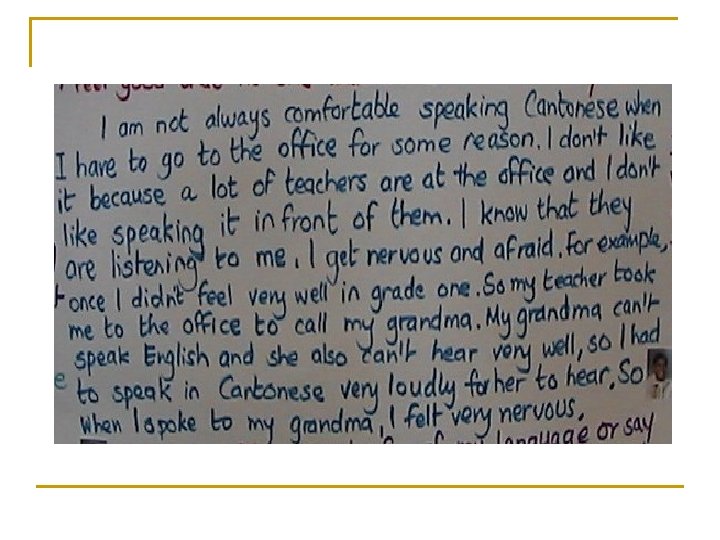 I am not always comfortable speaking Cantonese when
I have to go to the office for some reason. I don't like
it because a lot of teachers are at the office and I don't
like speaking it in front of them. I know that they
are listening to me. I get nervous and afraid. For example,
once I didn't feel very well in grade one. So my teacher took
me to the office to call my grandma. My grandma can't
speak English and she also can't hear very well, so I had
to speak in Cantonese very loudly for her to hear. So
when I spoke to my grandma, I felt very nervous.
language or say